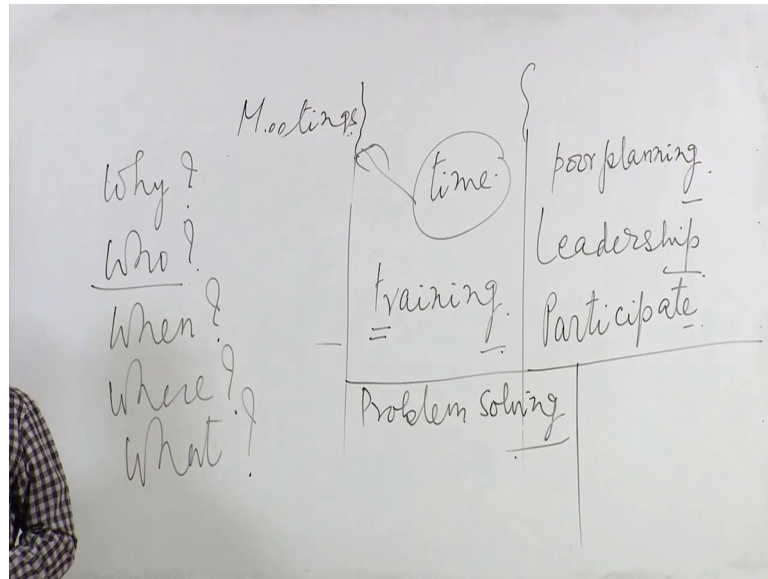 Meetings
Why?
Who?
When?
Where?
What?
time.
training.
Problem solving
poor planning.
Leadership
Participate